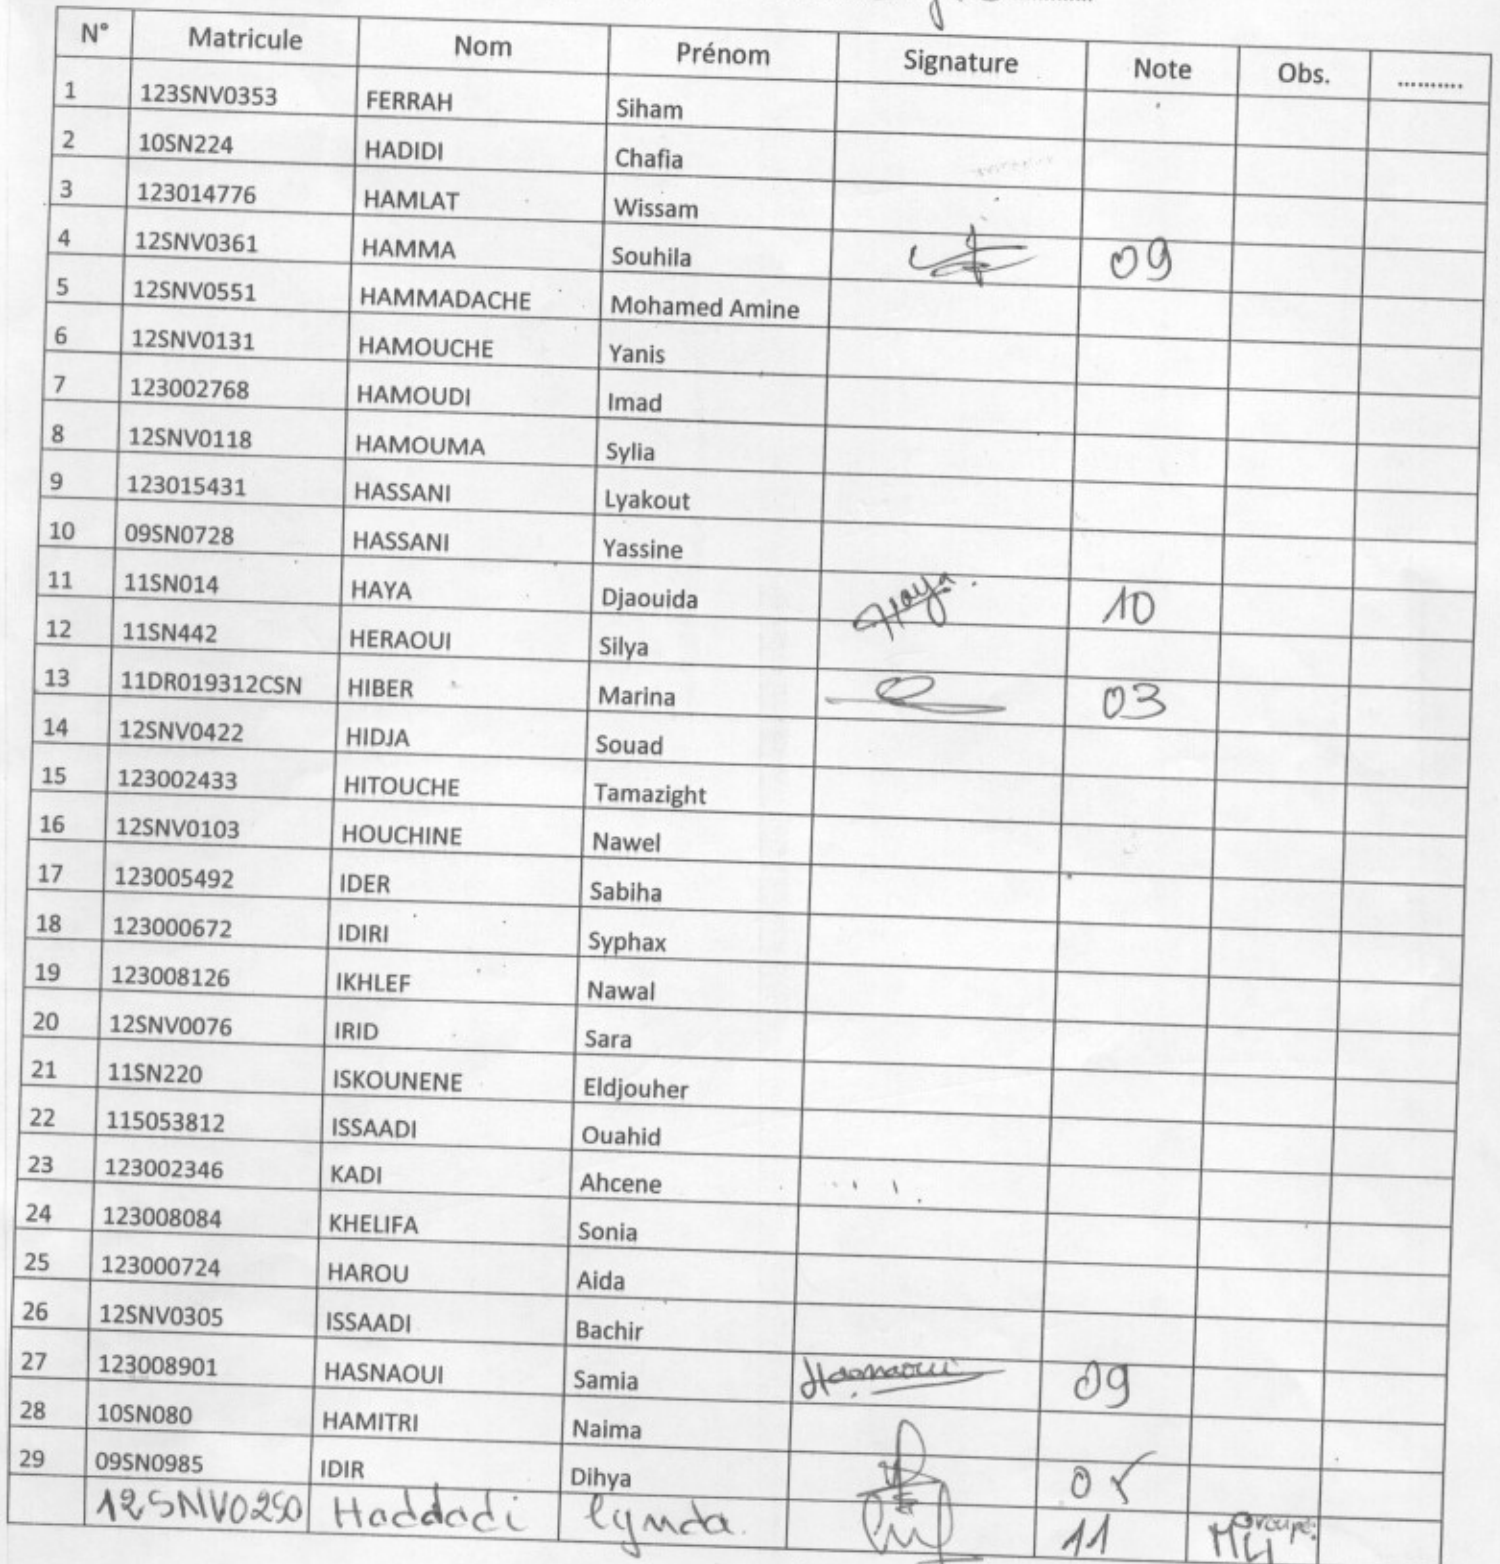 N° Matricule Nom Prénom Signature Note Obs. ..........
1 123SNV0353 FERRAH Siham
2 10SN224 HADIDI Chafia
3 123014776 HAMLAT Wissam
4 12SNV0361 HAMMA Souhila 09
5 12SNV0551 HAMMADACHE Mohamed Amine
6 12SNV0131 HAMOUCHE Yanis
7 123002768 HAMOUDI Imad
8 12SNV0118 HAMOUMA Sylia
9 123015431 HASSANI Lyakout
10 09SN0728 HASSANI Yassine
11 11SN014 HAYA Djaouida Haya. 10
12 11SN442 HERAOUI Silya
13 11DR019312CSN HIBER Marina 03
14 12SNV0422 HIDJA Souad
15 123002433 HITOUCHE Tamazight
16 12SNV0103 HOUCHINE Nawel
17 123005492 IDER Sabiha
18 123000672 IDIRI Syphax
19 123008126 IKHLEF Nawal
20 12SNV0076 IRID Sara
21 11SN220 ISKOUNENE Eldjouher
22 115053812 ISSAADI Ouahid
23 123002346 KADI Ahcene
24 123008084 KHELIFA Sonia
25 123000724 HAROU Aida
26 12SNV0305 ISSAADI Bachir
27 123008901 HASNAOUI Samia Hasnaoui 09
28 10SN080 HAMITRI Naima
29 09SN0985 IDIR Dihya 05
12SNV0250 Haddadi lynda. 11 Groupe: